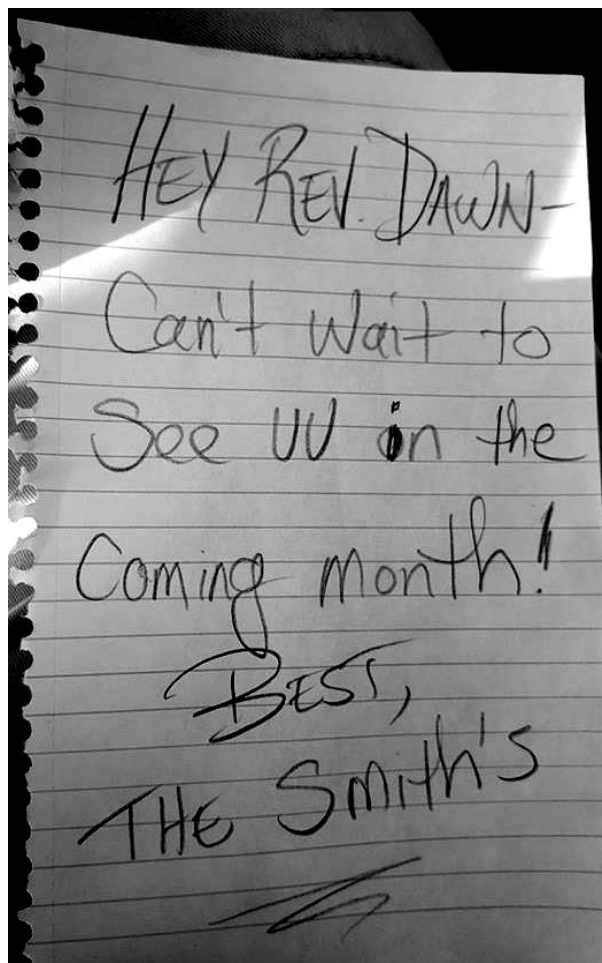 HEY REV. DAWN-
Can't Wait to
See UU in the
Coming month!
BEST,
THE Smith's